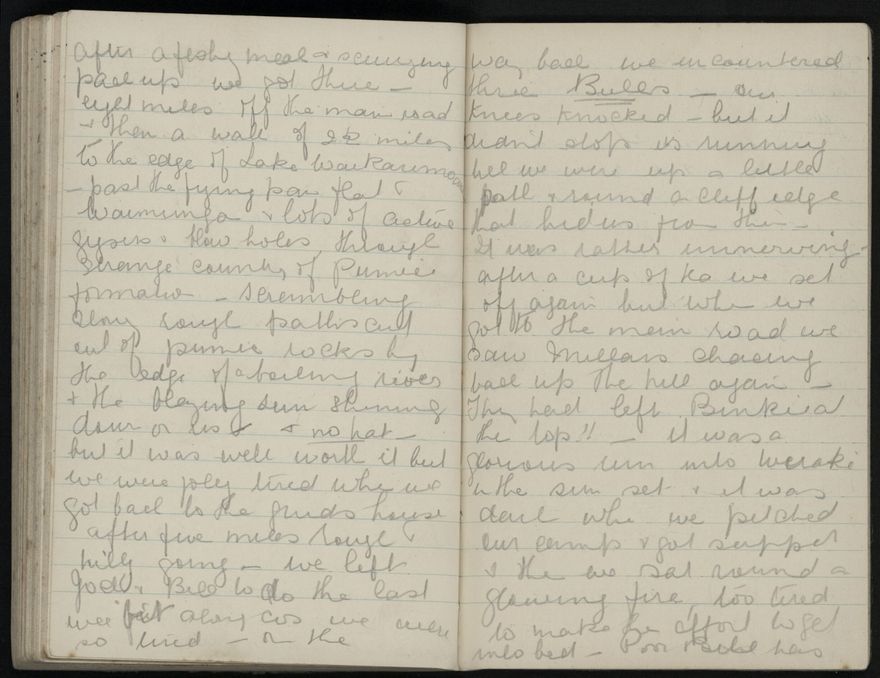 after a feshy meal & scurrying
pack up we got there —
eight miles off the main road
& then a walk of 2½ miles
to the edge of Lake
— past the frying pan flat &
Waimunga & lots of active
gysers & blow holes through
strange country of Pumice
formation — scrambling
along rough paths cut
out of pumice rocks by
the edge of a boiling river
& the blazing sun shining
down on us & no hat —
but it was well worth it but
we were joley tired when we
got back to the guides house
after five miles rough &
hilly going — we left
& Bill to do the last
wee bit along cos we were
so tired — on the
way back we encountered
three Bulls — our
Knees knocked — but it
didn't stop us running
till we were up a little
path & round a cliff edge
that hid us from them —
It was rather unnerving —
after a cup of tea we set
off again but when we
got to the main road we
saw Millars chasing
back up the hill again —
They had left Binkie at
the top!! — it was a
glorious run into Wairaki
in the sun set & it was
dark when we pitched
our camp & got supper
& then we sat round a
glowing fire, too tired
to make the effort to get
into bed — Poor has